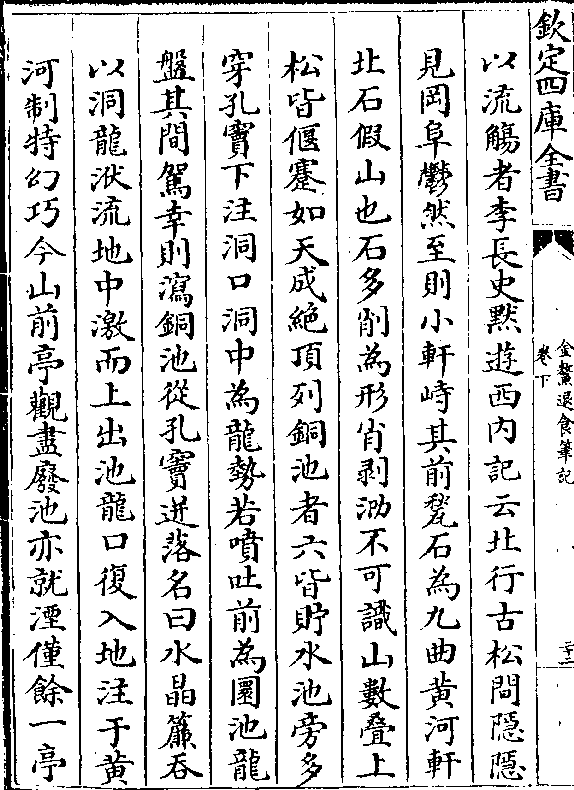 欽定四庫全書
金鰲退食筆記
卷下
二十三
以流觴者李長史黙遊西内記云北行古松間隱隱
見岡阜鬱然至則小軒峙其前甃石為九曲黄河軒
北石假山也石多削為形肖剥泐不可識山數疊上
松皆偃蹇如天成絶頂列銅池者六皆貯水池旁多
穿孔竇下注洞口洞中為龍勢若噴吐前為圜池龍
盤其間駕幸則瀉銅池從孔竇迸落名曰水晶簾吞
以洞龍洑流地中激而上出池龍口復入地注于黄
河制特幻巧今山前亭觀盡廢池亦就湮僅餘一亭